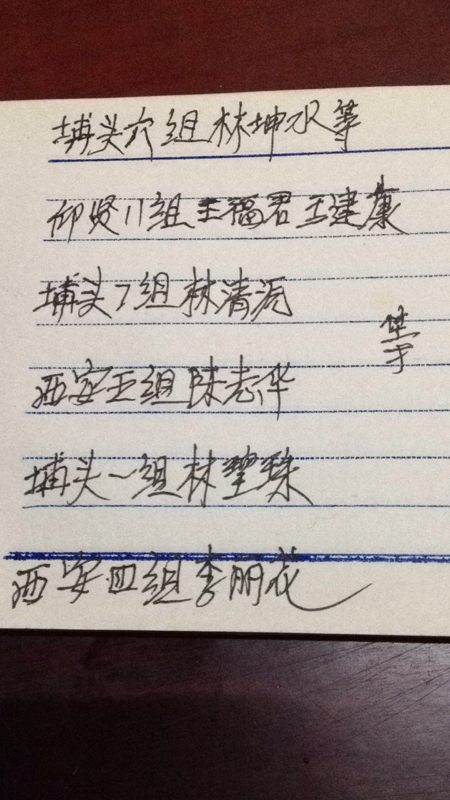 埔头六组林坤水等
仰贤11组王福君王建康
埔头7组林清沅
等
西安五组陈志华
埔头一组林望珠
西安四组李丽花